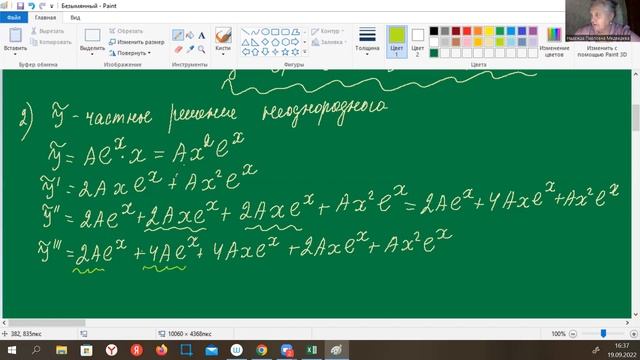 Безымянный - Paint
Файл Главная Вид
Вставить
Вырезать
Копировать
Буфер обмена
Выделить
Обрезать
Изменить размер
Повернуть
Изображение
Инструменты
Кисти
Контур
Заливка
Фигуры
Толщина
Цвет 1
Цвет 2
Цвета
Изменение цветов
Изменить с помощью Paint 3D
Надежда Павловна Медведева
2) ỹ - частное решение неоднородного
ỹ = Ae^x · x = Ax²e^x
ỹ' = 2Axe^x + Ax²e^x
ỹ'' = 2Ae^x + 2Axe^x + 2Axe^x + Ax²e^x = 2Ae^x + 4Axe^x + Ax²e^x
ỹ''' = 2Ae^x + 4Ae^x + 4Axe^x + 2Axe^x + Ax²e^x
382, 835пкс
10060 × 4368пкс
100%
16:37
19.09.2022